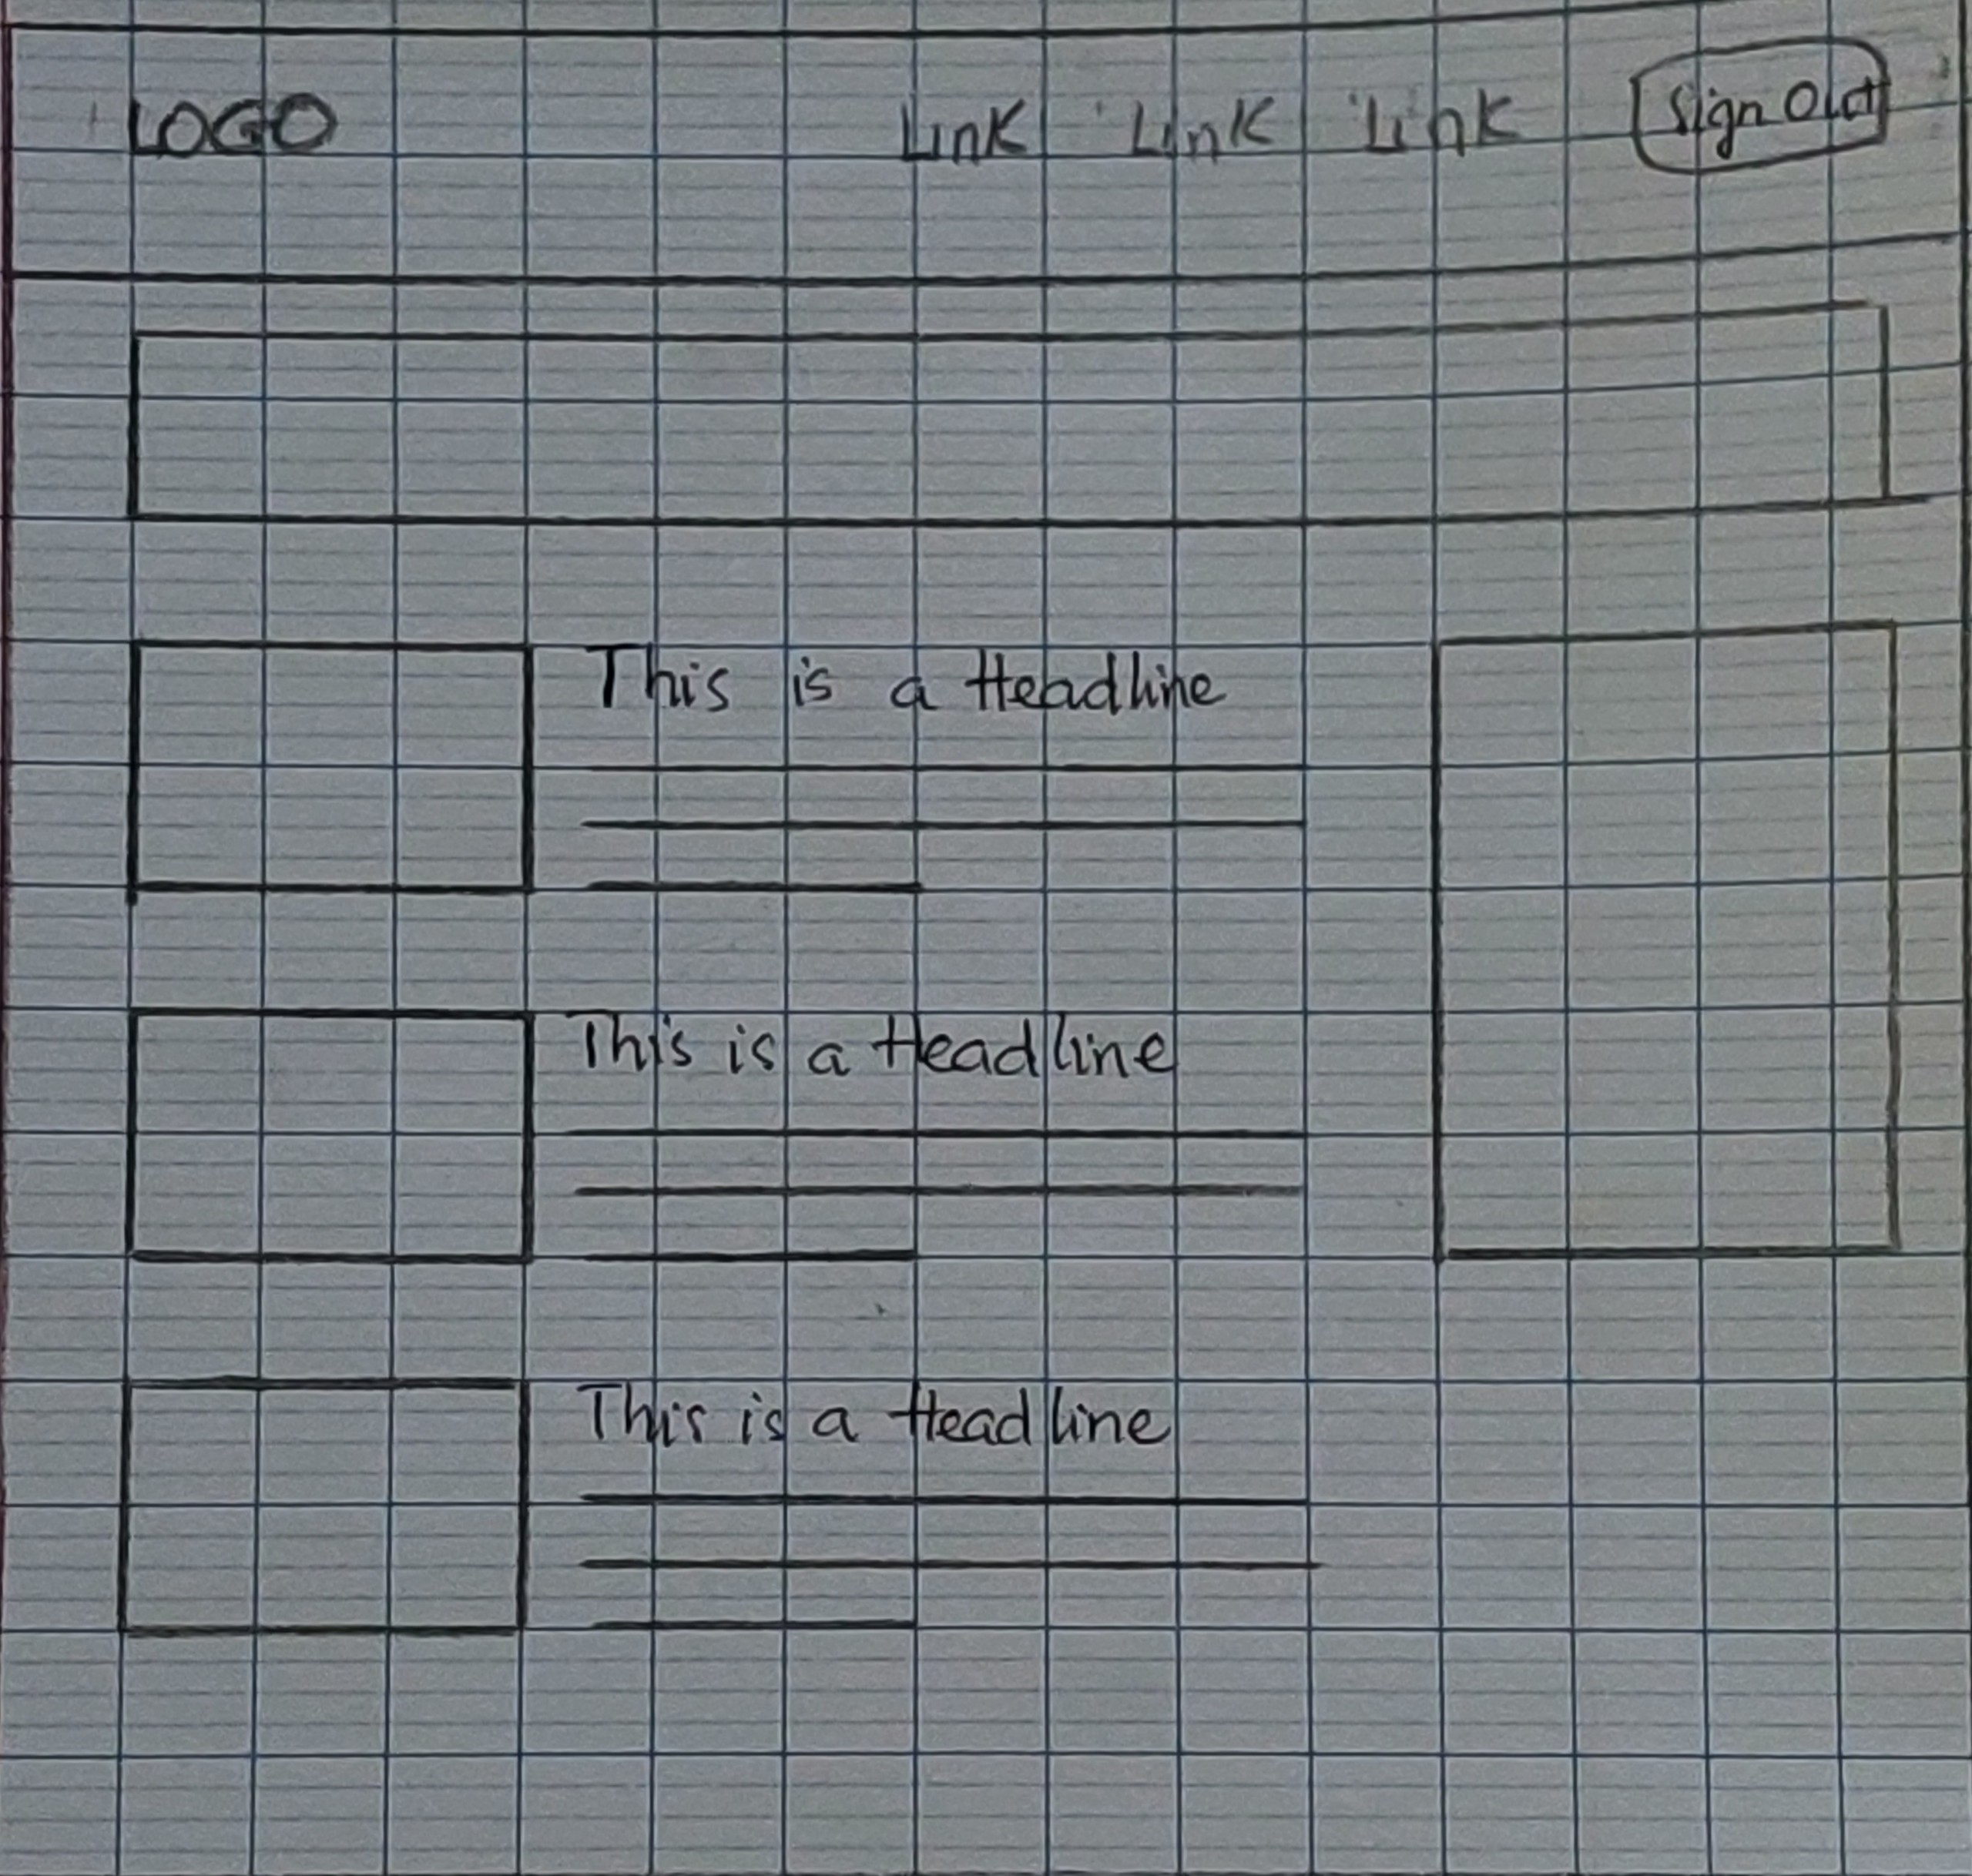 LOGO Link Link Link Sign Out
This is a Headline
This is a Headline
This is a Headline